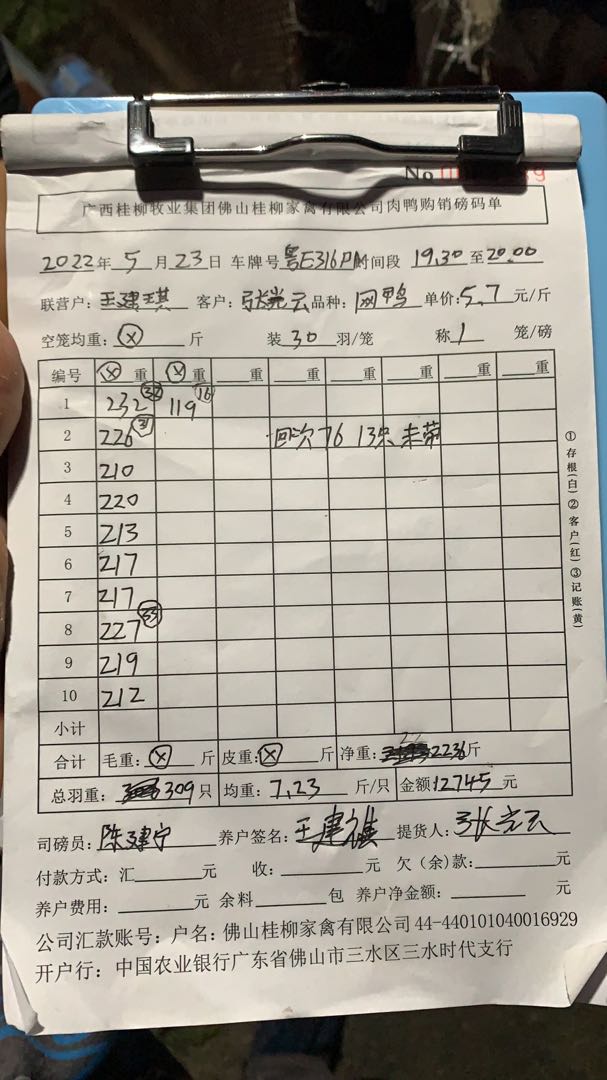 No
广西桂柳牧业集团佛山桂柳家禽有限公司肉鸭购销磅码单
2022年 5 月 23 日 车牌号 粤E316PM 时间段 19.30 至 20.00
联营户: 王建琪 客户: 张光云 品种: 网鸭 单价: 5.7 元/斤
空笼均重: ⓧ 斤 装 30 羽/笼 称 1 笼/磅
编号 ⓧ 重 ⓧ 重 重 重 重 重 重 重
1 232 32 119 16
2 226 31 回次 76 13只
3 210
4 220
5 213
6 217
7 217
8 227 33
9 219
10 212
小计
合计 毛重: ⓧ 斤 皮重: ⓧ 斤 净重: 2236 斤
总羽重: 309 只 均重: 7.23 斤/只 金额 12745 元
司磅员: 陈建宁 养户签名: 提货人: 张光云
付款方式: 汇 元 收: 元 欠(余)款: 元
养户费用: 元 余料 包 养户净金额: 元
公司汇款账号: 户名: 佛山桂柳家禽有限公司 44-440101040016929
开户行: 中国农业银行广东省佛山市三水区三水时代支行
①存根(白)②客户(红)③记账(黄)